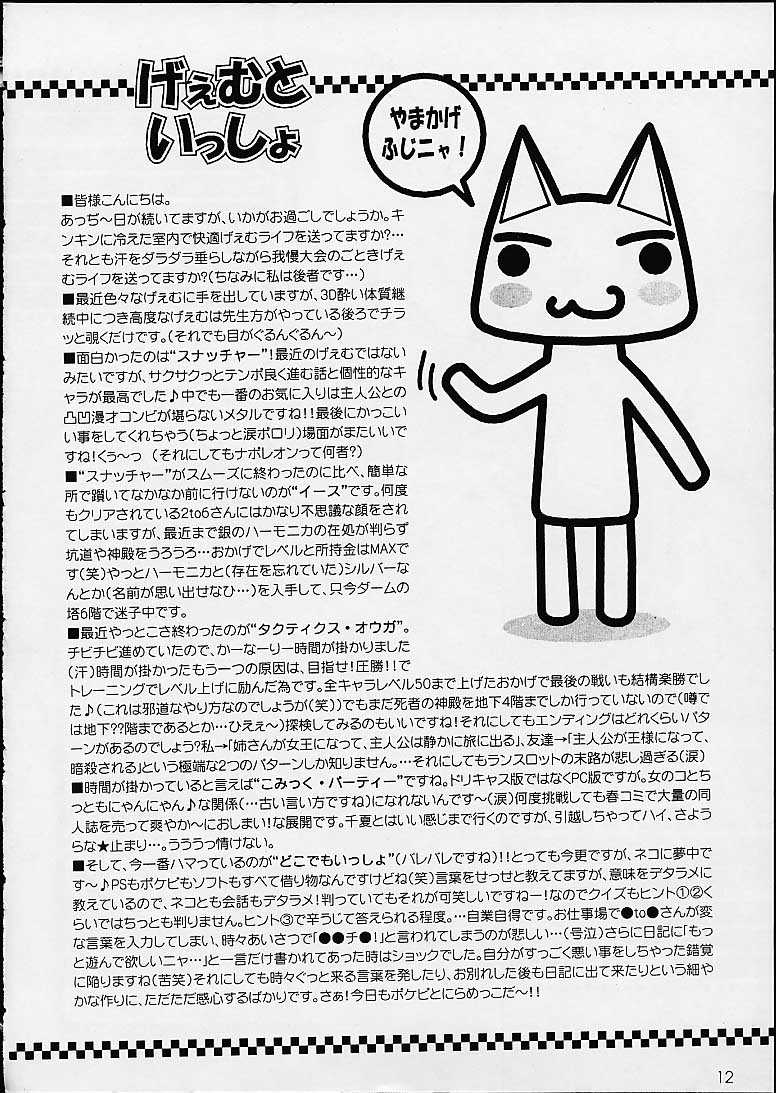 げぇむと
いっしょ
やまかげ
ふじニャ!
■皆様こんにちは。
あっぢ〜日が続いてますが、いかがお過ごしでしょうか。キ
ンキンに冷えた室内で快適げぇむライフを送ってますか?…
それとも汗をダラダラ垂らしながら我慢大会のごときげぇ
むライフを送ってますか?(ちなみに私は後者です…)
■最近色々なげぇむに手を出していますが、3D酔い体質継
続中につき高度なげぇむは先生方がやっている後ろでチラ
ッと覗くだけです。(それでも目がぐるんぐるん〜)
■面白かったのは“スナッチャー”!最近のげぇむではない
みたいですが、サクサクっとテンポ良く進む話と個性的なキ
ャラが最高でした♪中でも一番のお気に入りは主人公との
凸凹漫才コンビが堪らないメタルですね!!最後にかっこい
い事をしてくれちゃう(ちょっと涙ポロリ)場面がまたいいで
すね!くぅ〜っ (それにしてもナポレオンって何者?)
■“スナッチャー”がスムーズに終わったのに比べ、簡単な
所で躓いてなかなか前に行けないのが“イース”です。何度
もクリアされている2to6さんにはかなり不思議な顔をされ
てしまいますが、最近まで銀のハーモニカの在処が判らず
坑道や神殿をうろうろ…おかげでレベルと所持金はMAXで
す(笑)やっとハーモニカと(存在を忘れていた)シルバーな
んとか(名前が思い出せなひ…)を入手して、只今ダームの
塔6階で迷子中です。
■最近やっとこさ終わったのが“タクティクス・オウガ”。
チビチビ進めていたので、かーなーりー時間が掛かりました
(汗)時間が掛かったもう一つの原因は、目指せ!圧勝!!で
トレーニングでレベル上げに励んだ為です。全キャラレベル50まで上げたおかげで最後の戦いも結構楽勝でし
た♪(これは邪道なやり方なのでしょうが(笑))でもまだ死者の神殿を地下4階までしか行っていないので(噂で
は地下??階まであるとか…ひえぇ〜)探検してみるのもいいですね!それにしてもエンディングはどれくらいパタ
ーンがあるのでしょう?私→「姉さんが女王になって、主人公は静かに旅に出る」、友達→「主人公が王様になって、
暗殺される」という極端な2つのパターンしか知りません。…それにしてもランスロットの末路が悲し過ぎる(涙)
■時間が掛かっていると言えば“こみっく・パーティー”ですね。ドリキャス版ではなくPC版ですが。女のコとちっ
ともにゃんにゃん♪な関係(…古い言い方ですね)になれないんです〜(涙)何度挑戦しても春コミで大量の同
人誌を売って爽やか〜におしまい!な展開です。千夏とはいい感じまで行くのですが、引越しちゃってハイ、さよう
らな★止まり…。うううっ情けない。
■そして、今一番ハマっているのが“どこでもいっしょ”(バレバレですね)!!とっても今更ですが、ネコに夢中で
す〜♪PSもポケピもソフトもすべて借り物なんですけどね(笑)言葉をせっせと教えてますが、意味をデタラメに
教えているので、ネコとも会話もデタラメ!判っていてもそれが可笑しいですねー!なのでクイズもヒント①②く
らいではちっとも判りません。ヒント③で辛うじて答えられる程度。…自業自得です。お仕事場で●to●さんが変
な言葉を入力してしまい、時々あいさつで「●●チ●!」と言われてしまうのが悲しい…(号泣)さらに日記に「もっ
と遊んで欲しいニャ…」と一言だけ書かれてあった時はショックでした。自分がすっごく悪い事をしちゃった錯覚
に陥りますね(苦笑)それにしても時々ぐっと来る言葉を発したり、お別れした後も日記に出て来たりという細や
かな作りに、ただただ感心するばかりです。さぁ!今日もポケピとにらめっこだ〜!!
12